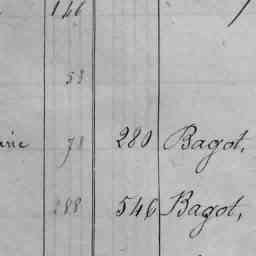 146
53
78 280 Bagot,
288 546 Bagot,